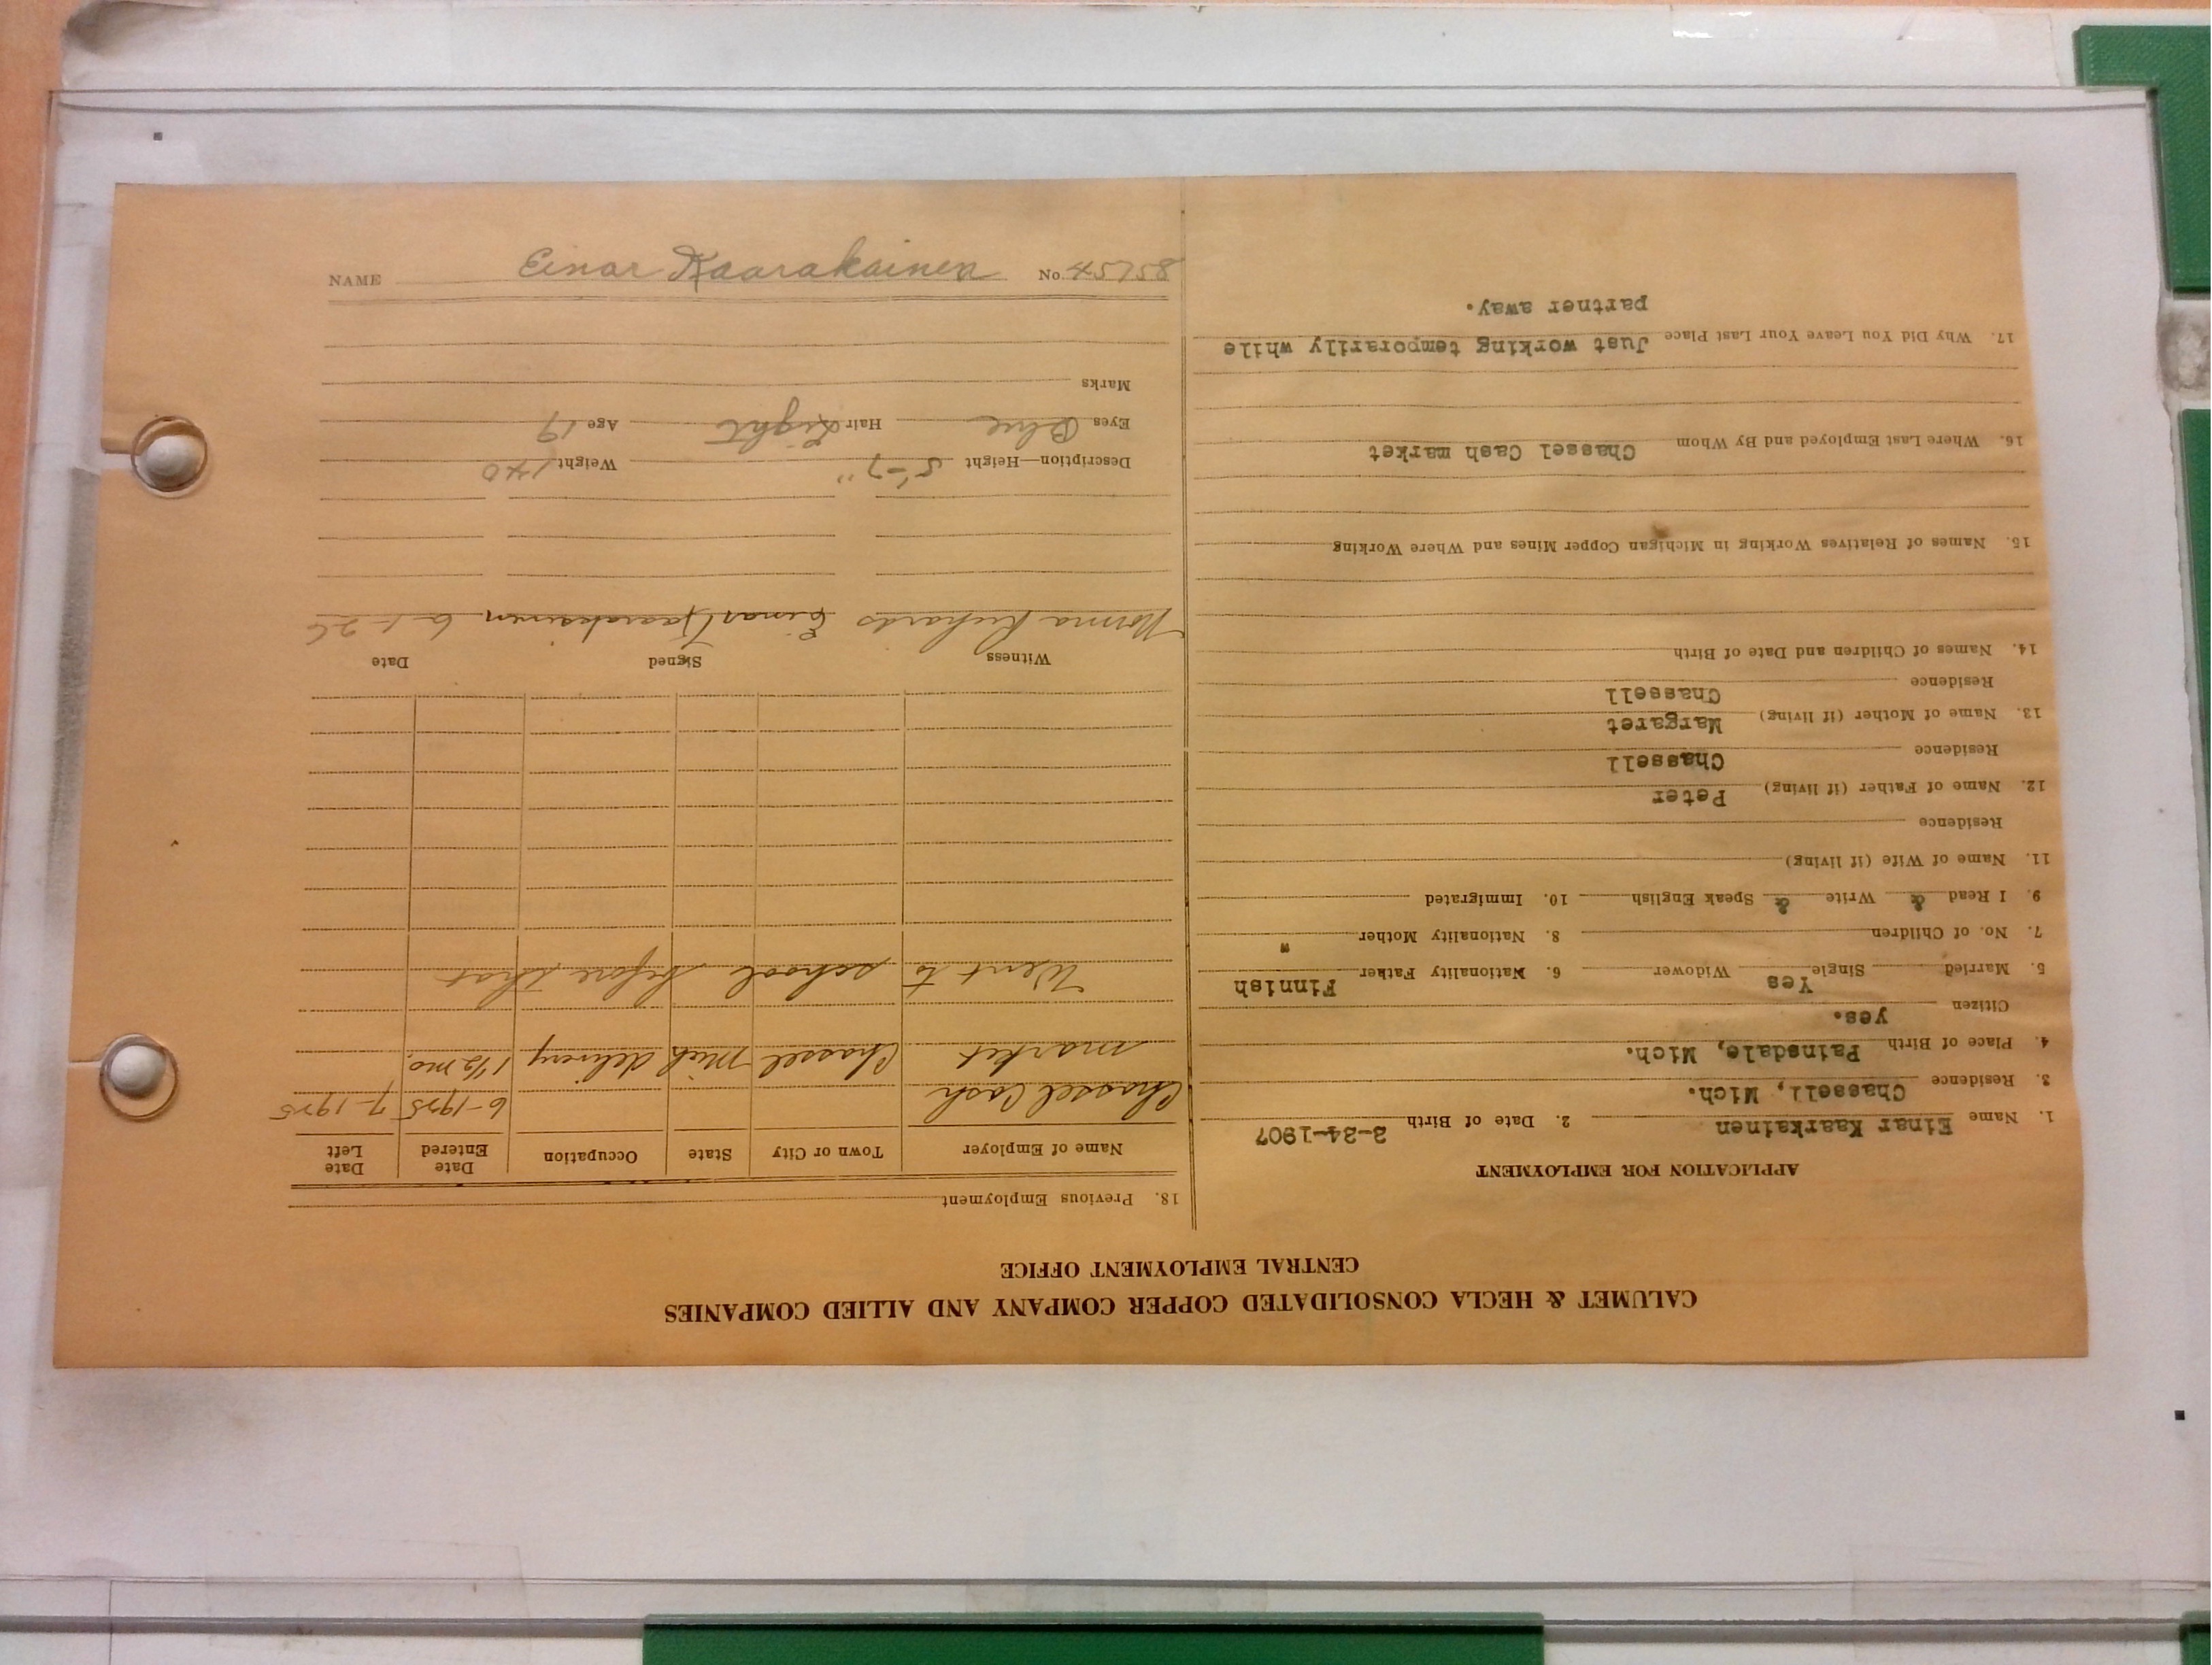 CALUMET & HECLA CONSOLIDATED COPPER COMPANY AND ALLIED COMPANIES
CENTRAL EMPLOYMENT OFFICE
APPLICATION FOR EMPLOYMENT
1. Name Einar Kaarkainen 2. Date of Birth 3-34-1907
3. Residence Chassell, Mich.
4. Place of Birth Painsdale, Mich.
Citizen yes.
5. Married Single Yes Widower 6. Nationality Father Finnish
7. No. of Children 8. Nationality Mother "
9. I Read & Write & Speak English 10. Immigrated
11. Name of Wife (if living)
Residence
12. Name of Father (if living) Peter
Residence Chassell
13. Name of Mother (if living) Margaret
Residence Chassell
14. Names of Children and Date of Birth
15. Names of Relatives Working in Michigan Copper Mines and Where Working
16. Where Last Employed and By Whom Chassel Cash market
17. Why Did You Leave Your Last Place Just working temporarily while
partner away.
18. Previous Employment
Name of Employer Town or City State Occupation Date Entered Date Left
Chassel Cash 6-1925 7-1925
market Chassel Mich delivery 1 1/2 mo.
Went to school before that
Witness Signed Date
Norma Richards Einar Kaarakainen 6-1-26
Description—Height 5'-7" Weight 140
Eyes Blue Hair Light Age 19
Marks
NAME Einar Kaarakainen No. 45758